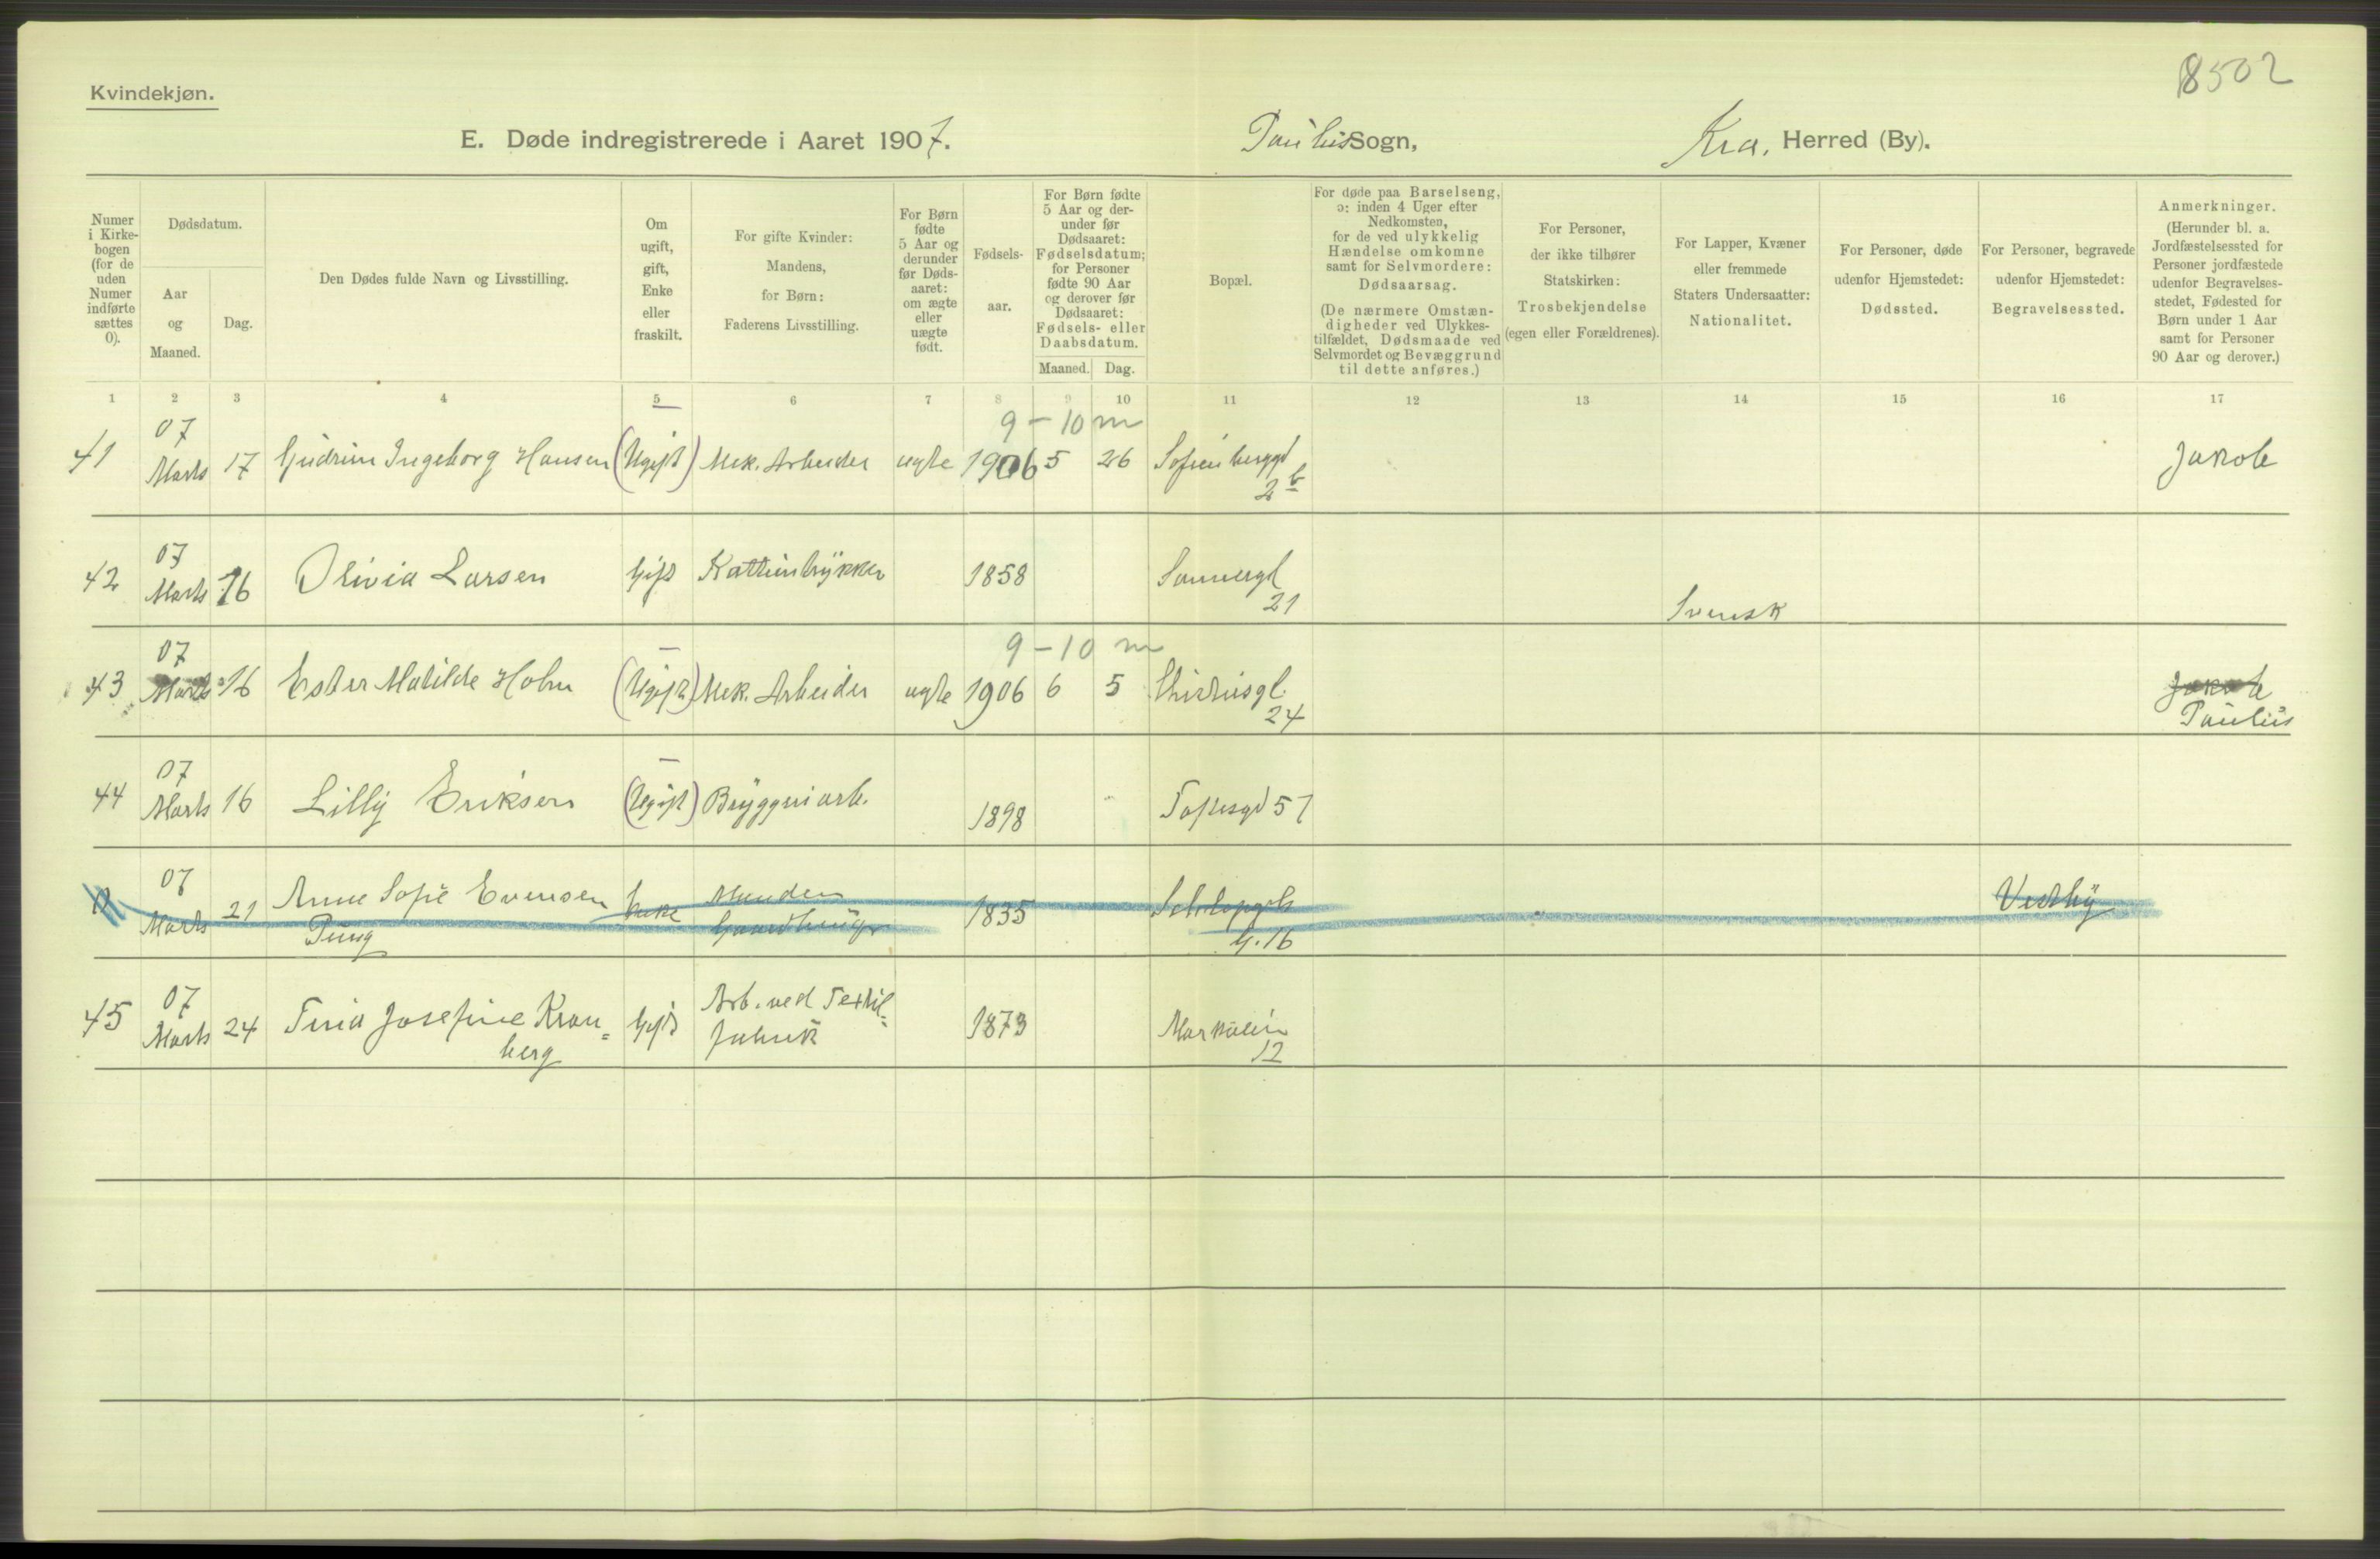 8502
Kvindekjøn.
E. Døde indregistrerede i Aaret 1907. Paulus Sogn, Kra. Herred (By).
Numer i Kirke-bogen (for de uden Numer indførte sættes 0).
Dødsdatum.
Aar og Maaned.
Dag.
Den Dødes fulde Navn og Livsstilling.
Om ugift, gift, Enke eller fraskilt.
For gifte Kvinder: Mandens, for Børn: Faderens Livsstilling.
For Børn fødte 5 Aar og derunder før Døds-aaret: om ægte eller uægte født.
Fødsels-aar.
For Børn fødte 5 Aar og der-under før Dødsaaret: Fødselsdatum; for Personer fødte 90 Aar og derover før Dødsaaret: Fødsels- eller Daabsdatum.
Maaned. Dag.
Bopæl.
For døde paa Barselseng, ɔ: inden 4 Uger efter Nedkomsten, for de ved ulykkelig Hændelse omkomne samt for Selvmordere: Dødsaarsag.
(De nærmere Omstæn-digheder ved Ulykkes-tilfældet, Dødsmaade ved Selvmordet og Bevæggrund til dette anføres.)
For Personer, der ikke tilhører Statskirken: Trosbekjendelse (egen eller Forældrenes).
For Lapper, Kvæner eller fremmede Staters Undersaatter: Nationalitet.
For Personer, døde udenfor Hjemstedet: Dødssted.
For Personer, begravede udenfor Hjemstedet: Begravelsessted.
Anmerkninger. (Herunder bl. a. Jordfæstelsessted for Personer jordfæstede udenfor Begravelses-stedet, Fødested for Børn under 1 Aar samt for Personer 90 Aar og derover.)
1 2 3 4 5 6 7 8 9 10 11 12 13 14 15 16 17
07 9-10 m
41 Marts 17 Gudrun Ingeborg Hansen (Ugift) Mek. Arbeider ægte 1906 5 26 Sofienberggd Jakob
2b
07
42 Marts 16 Olivia Larsen Gift Kattuntrykker 1858 Sannergd
21 Svensk
07 9-10 m
43 Marts 16 Ester Matilde Holm (Ugift) Mek. Arbeider ægte 1906 6 5 Christiesgt. Jakob
24 Paulus
07
44 Marts 16 Lilly Eriksen (Ugift) Bryggeriarb. 1898 Toftesgd 57
07 Anne Sofie Evensen Manden
0 Marts 21 Pung Enke 1835 Vestby
G. 16
07 Arb. ved Textil-
45 Marts 24 Tina Josefine Kron- Gift fabrik 1873 Markveien
berg 12